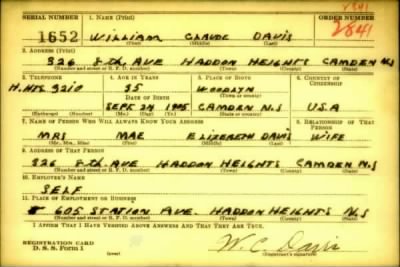 2841
SERIAL NUMBER 1. NAME (Print) ORDER NUMBER
1652 WILLIAM CLAUDE DAVIS 2841
(First) (Middle) (Last)
2. ADDRESS (Print)
326 8th AVE HADDON HEIGHTS CAMDEN N.J
(Number and street or R. F. D. number) (Town) (County) (State)
3. TELEPHONE 4. AGE IN YEARS 5. PLACE OF BIRTH 6. COUNTRY OF CITIZENSHIP
H.HTS. 3210 35 WOODLYN
DATE OF BIRTH (Town or county)
SEPT 24 1905 CAMDEN N.J U.S.A
(Exchange) (Number) (Mo.) (Day) (Yr.) (State or country)
7. NAME OF PERSON WHO WILL ALWAYS KNOW YOUR ADDRESS 8. RELATIONSHIP OF THAT PERSON
MRS MAE ELIZEBETH DAVIS WIFE
(Mr., Mrs., Miss) (First) (Middle) (Last)
9. ADDRESS OF THAT PERSON
326 8th AVE HADDON HEIGHTS CAMDEN N.J
(Number and street or R. F. D. number) (Town) (County) (State)
10. EMPLOYER'S NAME
SELF
11. PLACE OF EMPLOYMENT OR BUSINESS
605 STATION AVE. HADDON HEIGHTS N.J
(Number and street or R. F. D. number) (Town) (County) (State)
I AFFIRM THAT I HAVE VERIFIED ABOVE ANSWERS AND THAT THEY ARE TRUE.
REGISTRATION CARD W. C. Davis
D. S. S. Form 1 (Registrant's signature)